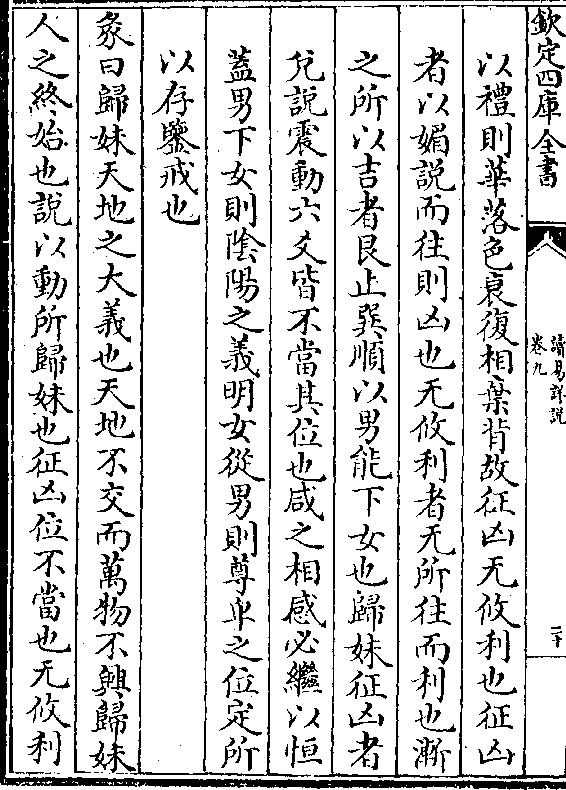 欽定四庫全書
讀易詳說
卷九
二十
以禮則華落色衰復相棄背故征凶无攸利也征凶
者以媚說而往則凶也无攸利者无所往而利也漸
之所以吉者艮止巽順以男能下女也歸妹征凶者
兌說震動六爻皆不當其位也咸之相感必繼以恒
蓋男下女則陰陽之義明女從男則尊卑之位定所
以存鑒戒也
彖曰歸妹天地之大義也天地不交而萬物不興歸妹
人之終始也說以動所歸妹也征凶位不當也无攸利